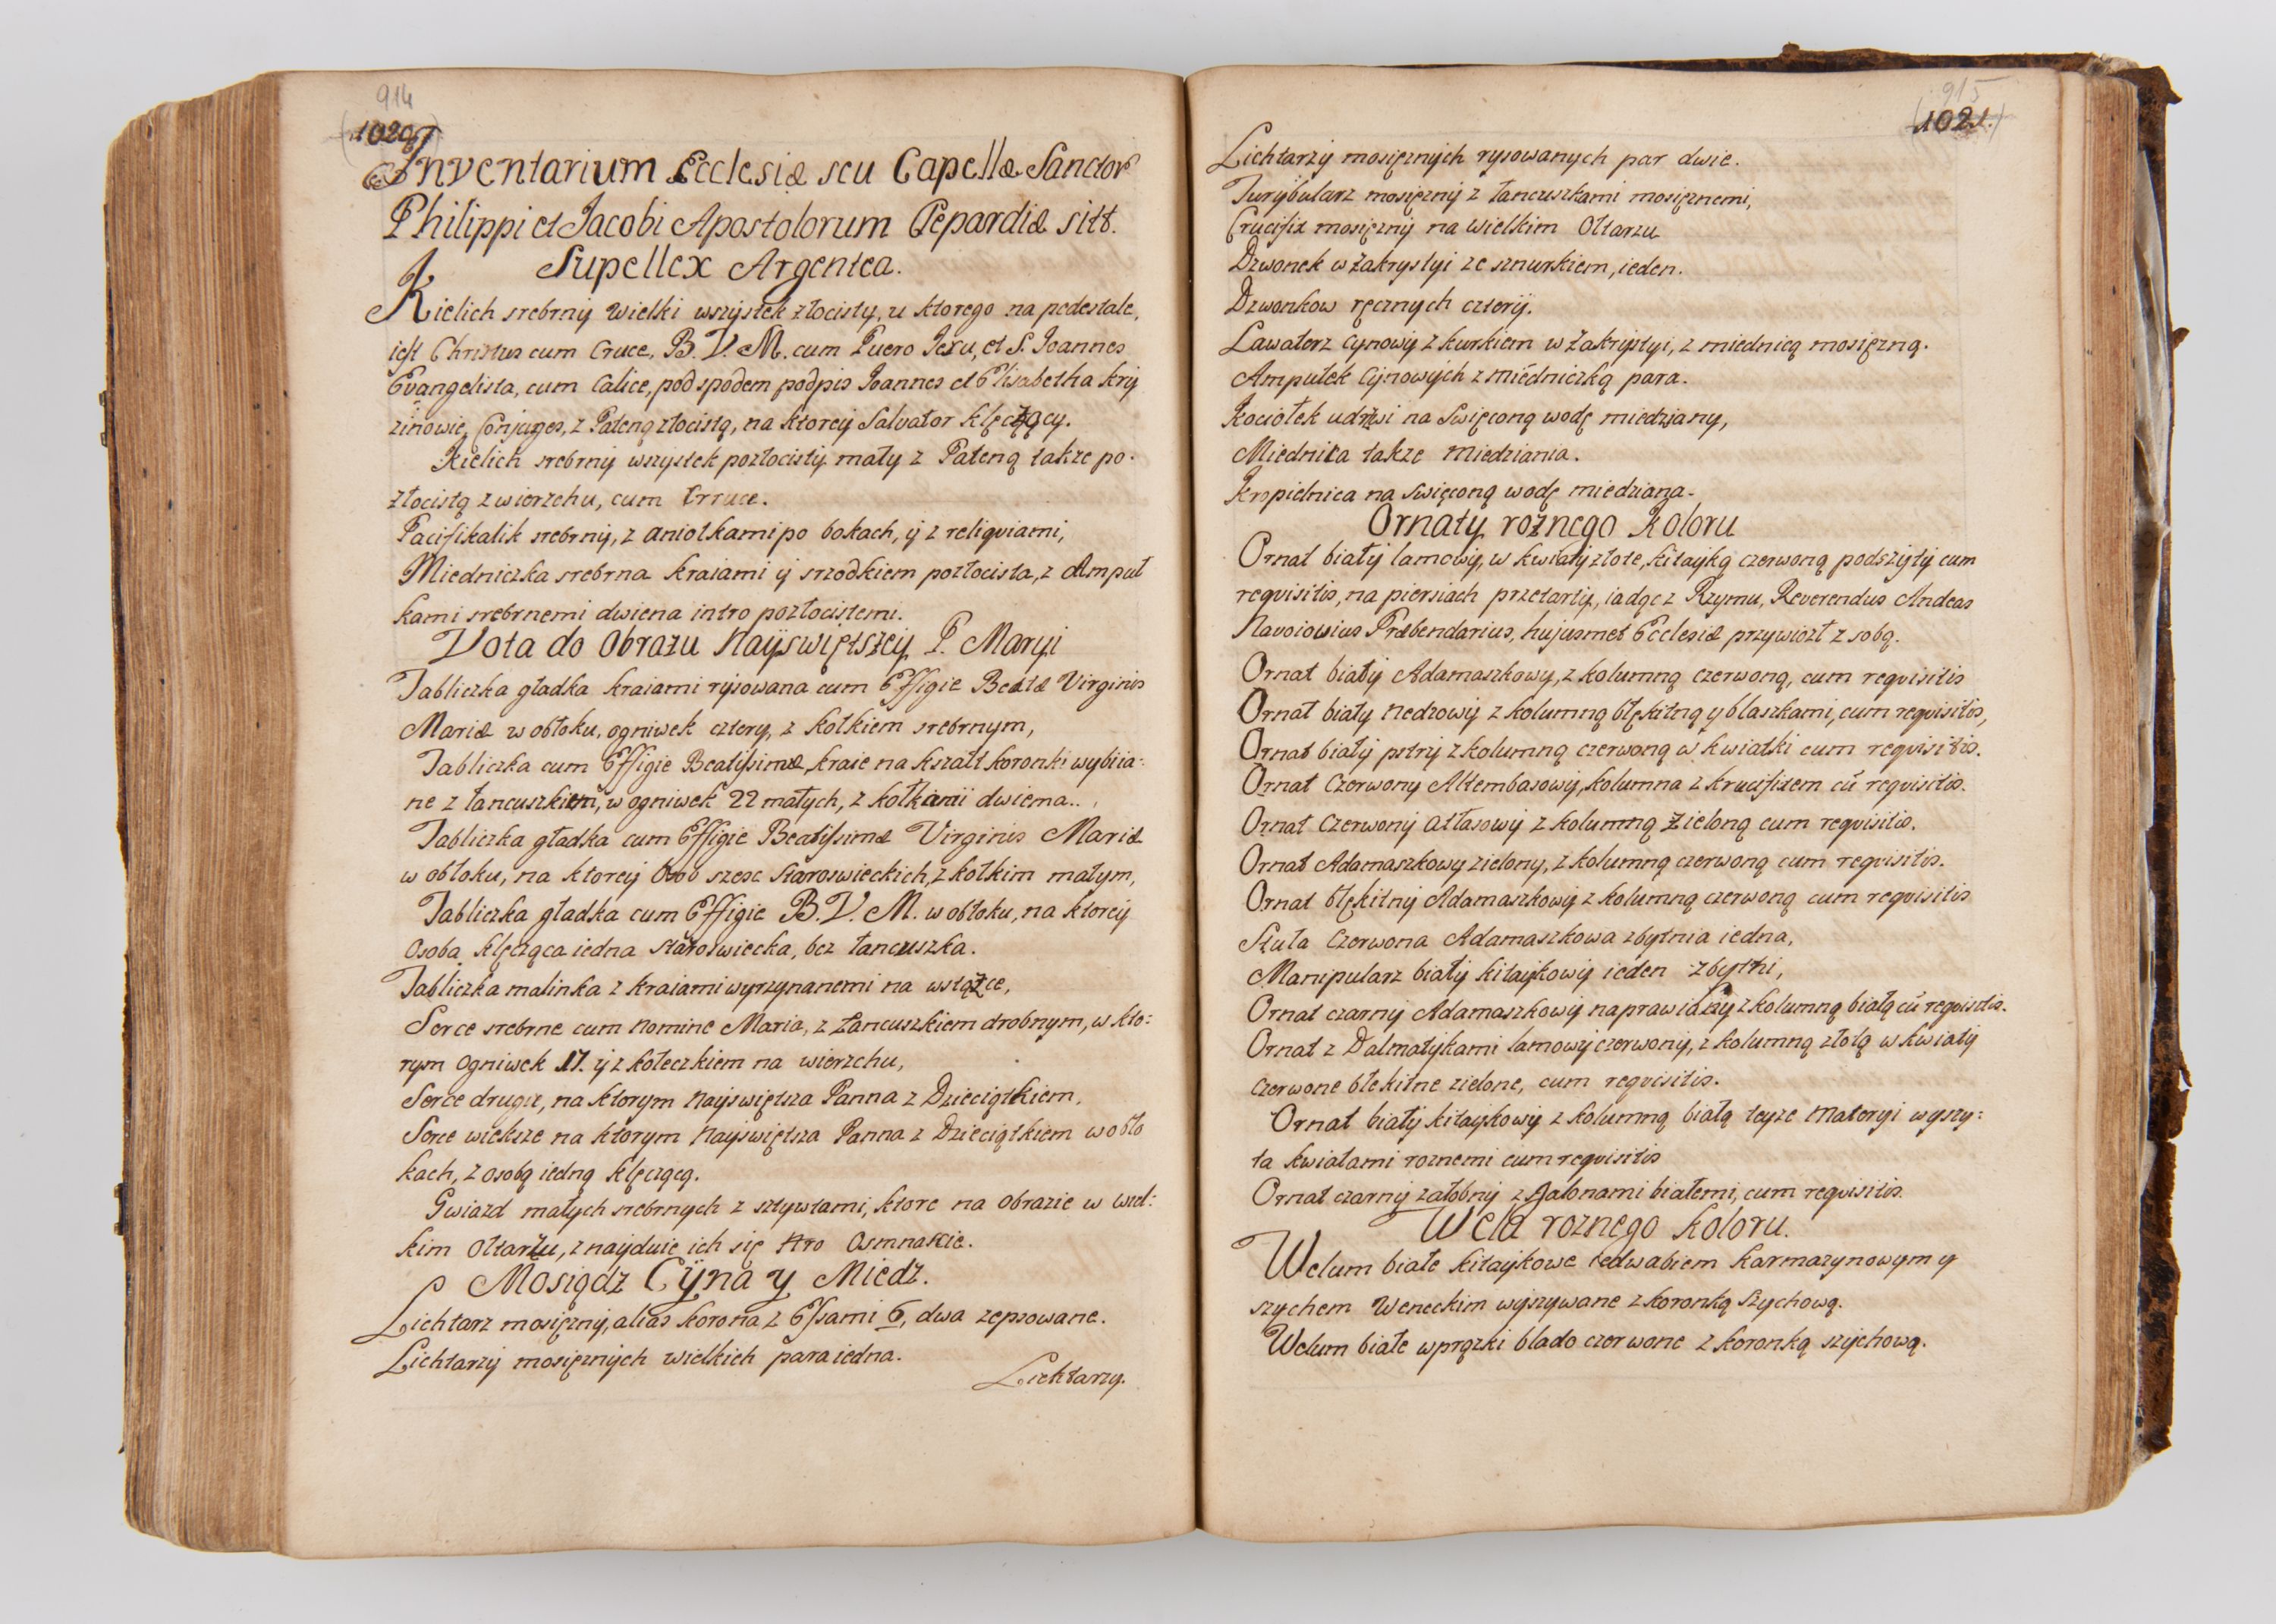 914
1020
Inventarium Ecclesiæ seu Capellæ Sanctor
Philippi et Jacobi Apostolorum Pepardiæ sitt.
Supellex Argentea.
Kielich srebrny wielki wszystek złocisty, u ktorego na pedestale,
iest Christus cum Cruce, B. V. M. cum Puero Jexu, et S. Joannes
Evangelista, cum Calice, pod spodem podpis Joannes et Elisabetha Kry
zinowie Conjuges, z Pateną złocistą, na ktorey Salvator klęczący.
Kielich srebrny wszystek pozłocisty mały z Pateną także po-
złocistą z wierzchu, cum Crruce.
Pacifikalik srebrny, z aniołkami po bokach, y z reliqviami,
Miedniczka srebrna kraiami y srzodkiem pozłocista, z Ampuł
kami srebrnemi dwiena intro pozłocistemi.
Vota do Obrazu Nayswiętszey P. Maryi
Tabliczka gładka kraiami rysowana cum Effigie Beatæ Virginis
Mariæ w obłoku, ogniwek cztery, z kołkiem srebrnym,
Tabliczka cum Effigie Beatissimæ, kraie na kształt koronki wybiia:
ne z łancuszkiem, w ogniwek 22 małych, z kołkami dwiema..,
Tabliczka gładka cum Effigie Beatissimæ Virginis Mariæ
w obłoku, na ktorey Osob szesc staroswieckich, z kołkim małym,
Tabliczka gładka cum Effigie B. V. M. w obłoku, na ktorey
Osoba klęcząca iedna staroswiecka, bez łancuszka.
Tabliczka malinka z kraiami wyrzynanemi na wstążce,
Serce srebrne cum nomine Maria, z łancuszkiem drobnym, w kto:
rym Ogniwek 17. y z kołeczkiem na wierzchu,
Serce drugie, na ktorym Nayswiętsza Panna z Dzieciątkiem,
Serce wieksze na ktorym Nayswiętsza Panna z Dzieciątkiem w obło
kach, z osobą iedną klęczącą.
Gwiazd małych srebrnych z sztywtami, ktore na obrazie w wiel:
kim Ołtarzu, znayduie ich się Nro Osmnascie.
Mosiądz Cyna y Miedz.
Lichtarz mosiężny, alias korona z Essami 6, dwa zepsowane.
Lichtarzy mosiężnych wielkich para iedna.
Lichtarzy.
915
1021.
Lichtarzy mosiężnych rysowanych par dwie.
Turybularz mosiężny z łancuszkami mosięznemi,
Crucifix mosiężny na wielkim Ołtarzu
Dzwonek w Zakrystyi ze sznurkiem, ieden.
Dzwonkow ręcznych cztery.
Lawaterz cynowy z kurkiem w Zakrystyi, z miednicą mosięzną.
Ampułek Cynowych z miedniczką para.
Kociołek udrzwi na Swięconą wodę miedziany,
Miednica także miedziania.
Kropielnica na swięconą wodę miedziana.
Ornaty rożnego Koloru
Ornat biały lamowy, w kwiaty złote, kitayką czerwoną podszyty cum
reqvisitis, na piersiach przetarty, iadąc z Rzymu, Reverendus Andeas
Navoiovius Præbendarius, hujusmet Ecclesiæ przywiozł z sobą.
Ornat biały Adamaszkowy, z kolumną czerwoną, cum reqvisitis
Ornat biały nedzowy z kolumną błękitną y blaszkami, cum reqvisitis,
Ornat biały pstry z kolumną czerwoną w kwiatki cum reqvisitis.
Ornat Czerwony Altembasowy, kolumna z krucifixem cũ reqvisitis.
Ornat Czerwony atłasowy z kolumną zieloną cum reqvisitis.
Ornat Adamaszkowy zielony, z kolumną czerwoną cum reqvisitis.
Ornat błękitny Adamaszkowy z kolumną czerwoną cum reqvisitis
Stuła Czerwona Adamaszkowa zbytnia iedna,
Manipularz biały kitaykowy ieden zbytni,
Ornat czarny Adamaszkowy naprawiany z kolumną białą cũ reqvisitis.
Ornat z Dalmatykami lamowy czerwony, z kolumną złotą w kwiaty
czerwone błekitne zielone, cum reqvisitis.
Ornat biały kitaykowy z kolumną białą teyze materyi wyszy:
ta kwiatami roznemi cum reqvisitis
Ornat czarny załobny z galonami białemi, cum reqvisitis.
Wela roznego koloru.
Welum białe kitaykowe iedwabiem karmazynowym y
szychem Weneckim wyszywane z koronką Szychową.
Welum białe wprązki blado czerwone z koronką szychową.